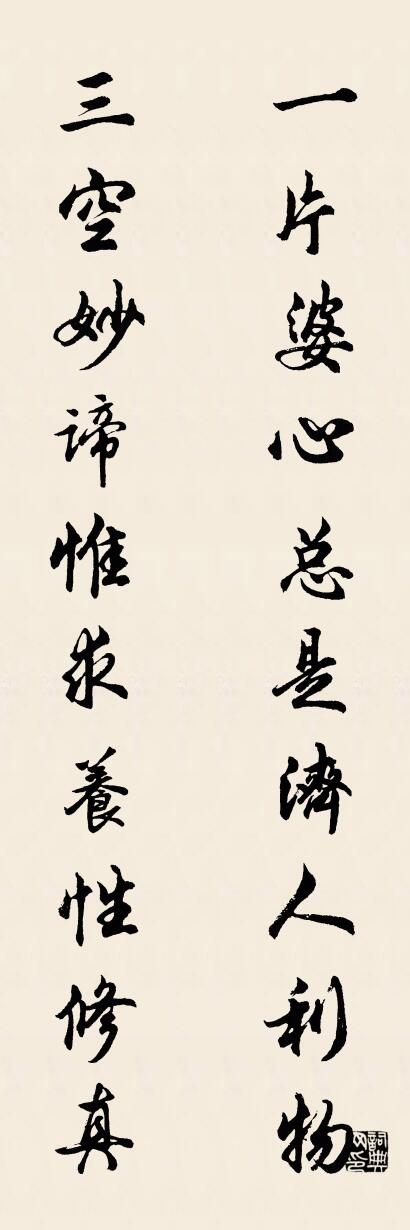 一片婆心总是濟人利物
三空妙谛惟求養性修真
詞典